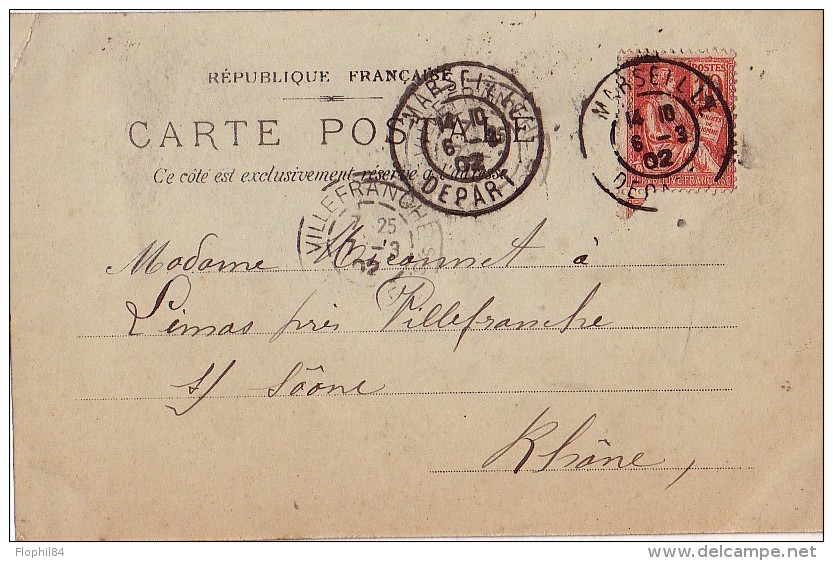 RÉPUBLIQUE FRANÇAISE
CARTE POSTALE
Ce côté est exclusivement réservé à l'adresse
MARSEILLE
14 10
6 -3
02
DEPART
POSTES
DROITS DE L'HOMME
RÉPUBLIQUE FRANÇAISE
MARSEILLE
14 10
6 -3
02
DEPART
VILLEFRANCHE
7 25
-3
02
Madame à
Limas près Villefranche
s/ Sâone
Rhône,
Flophil84
delcampe.net